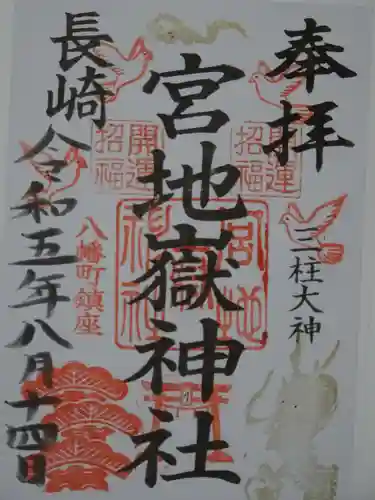 奉拝
三柱大神
開運
招福
宮地嶽神社
宮地
神社
開運
招福
長崎
八幡町鎮座
令和五年八月十四日